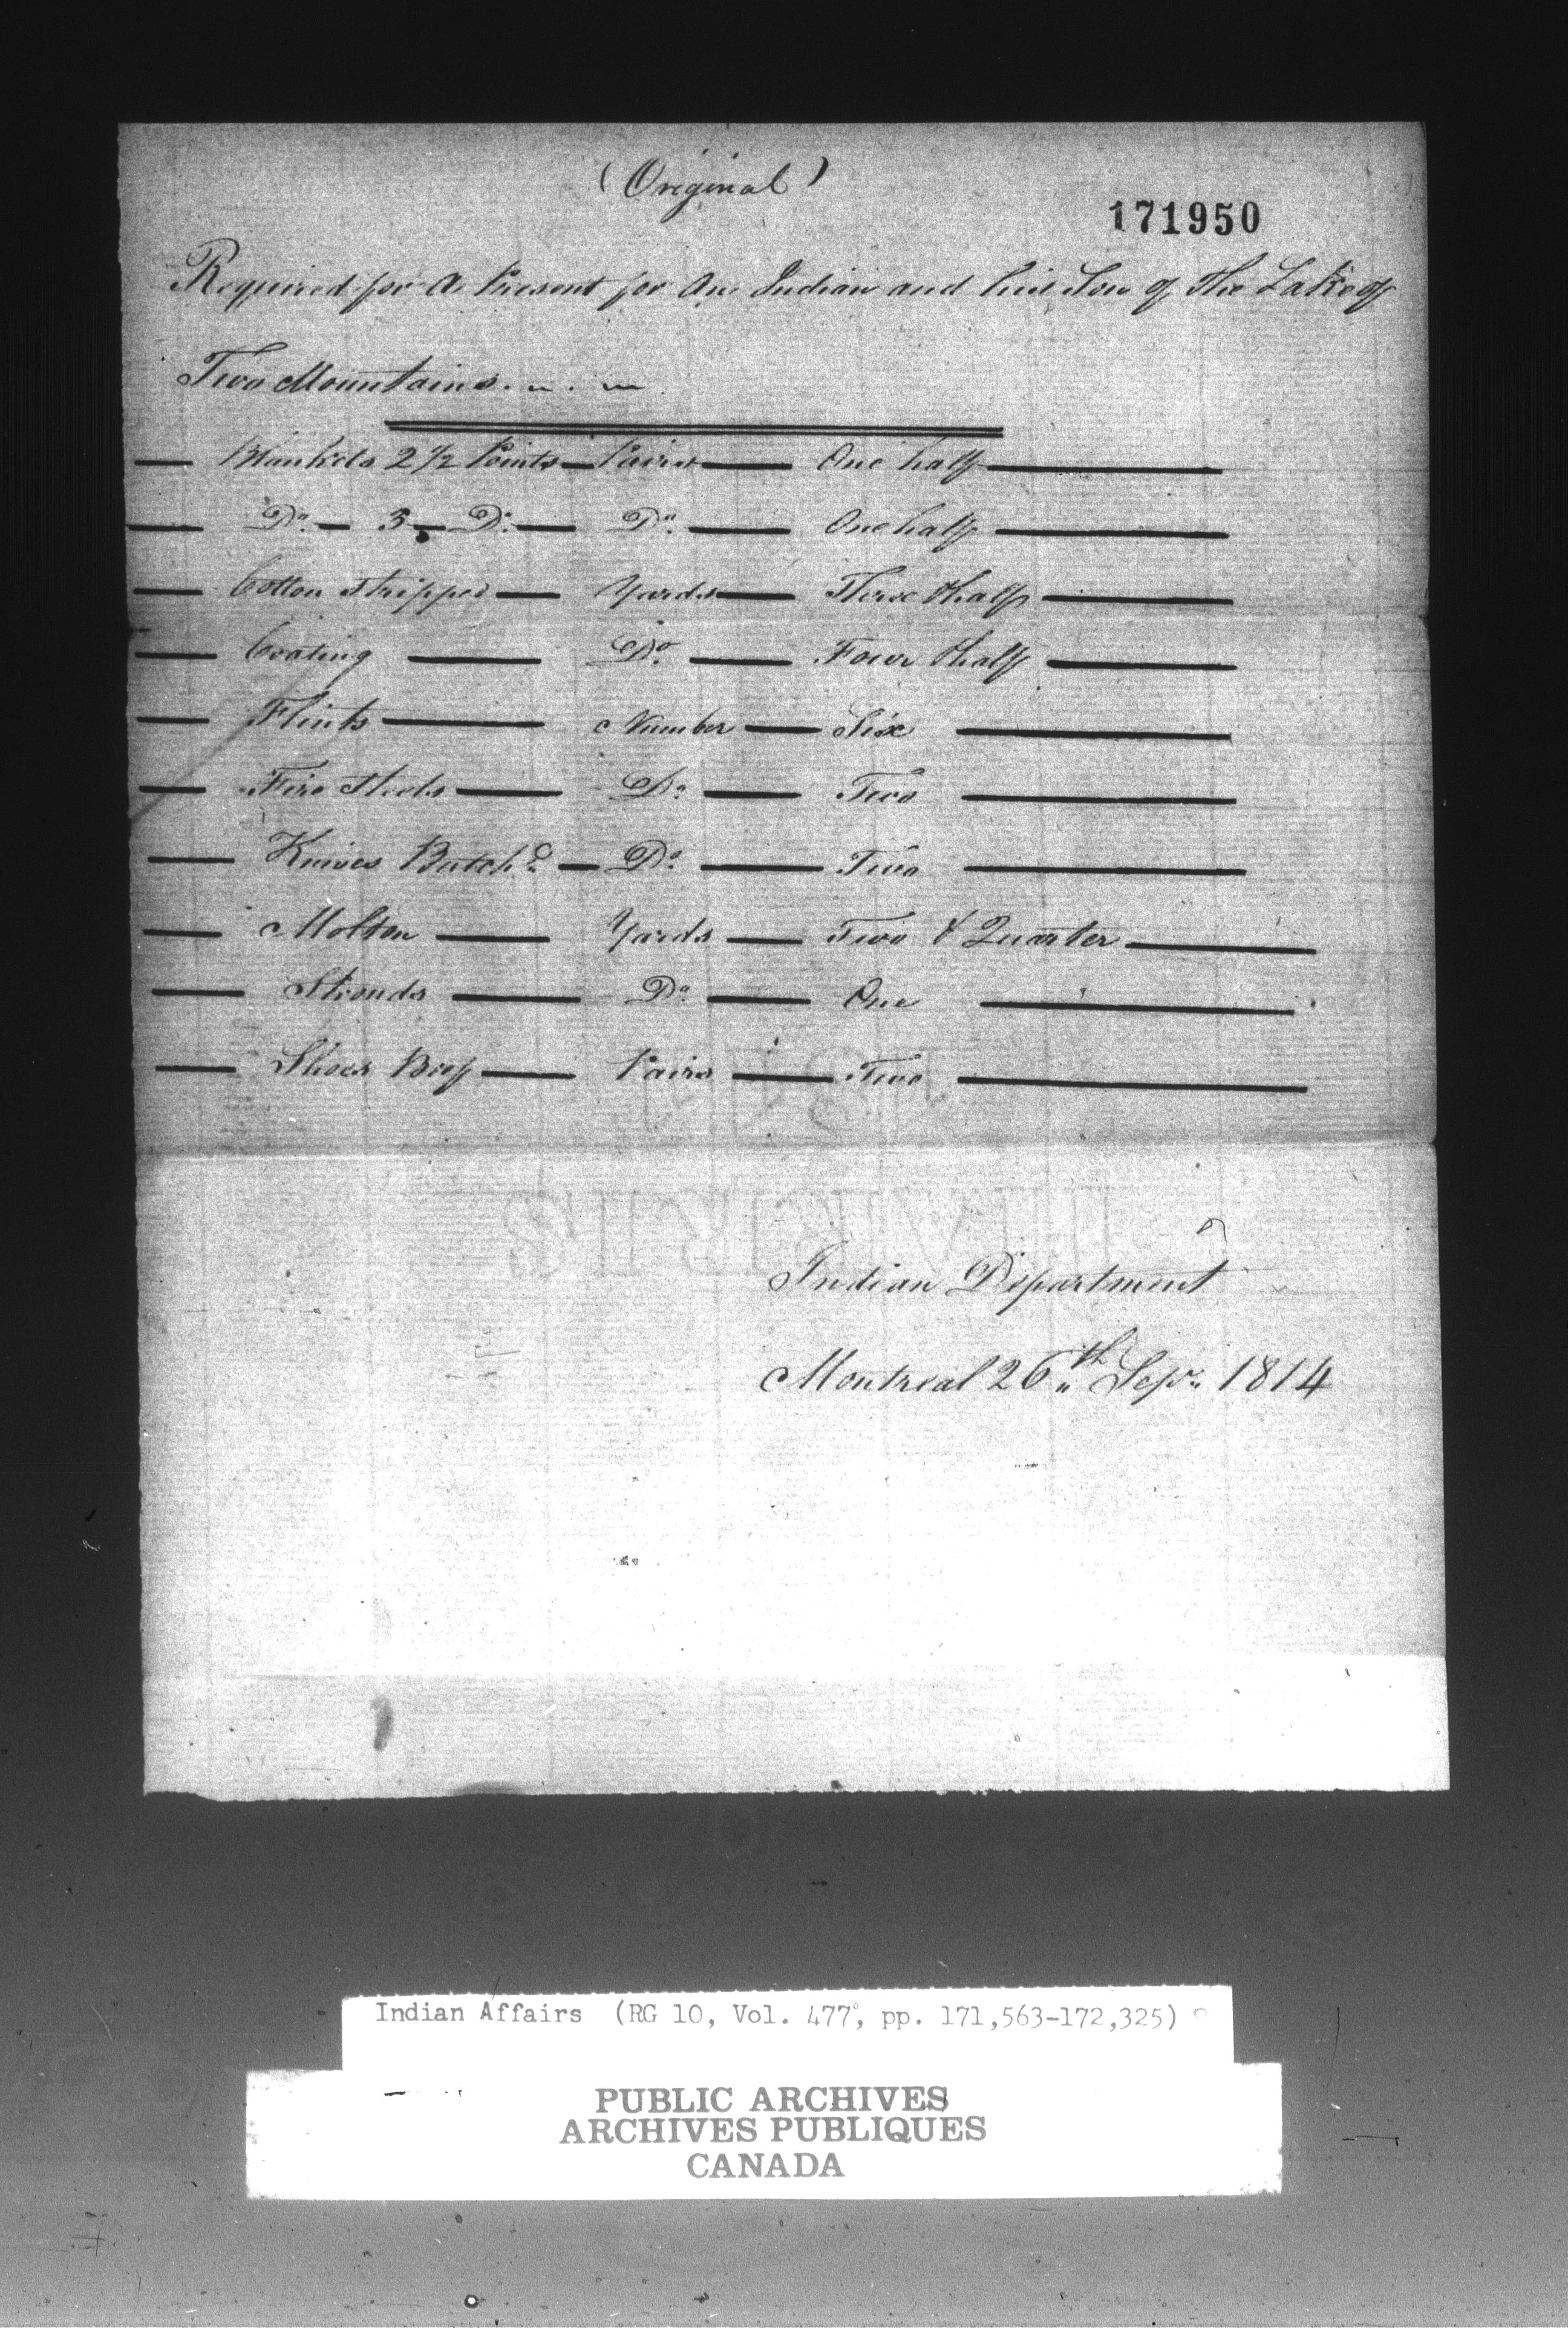 (Original)
171950
Required for A Present for An Indian and his Son of The Lake of
Two Mountains
Blankets 2 1/2 Points — Pairs — One half
Do — 3 — Do — Do — One half
Cotton Stripped — Yards — Three & half
Coating — Do — Four & half
Flints — Number — Six
Fire Steels — Do — Two
Knives Butchr — Do — Two
Molton — Yards — Two & Quarter
Strouds — Do — One
Shoes Beef — Pairs — Two
Indian Department
Montreal 26th Sepr 1814
Indian Affairs (RG 10, Vol. 477, pp. 171,563-172,325)
PUBLIC ARCHIVES
ARCHIVES PUBLIQUES
CANADA